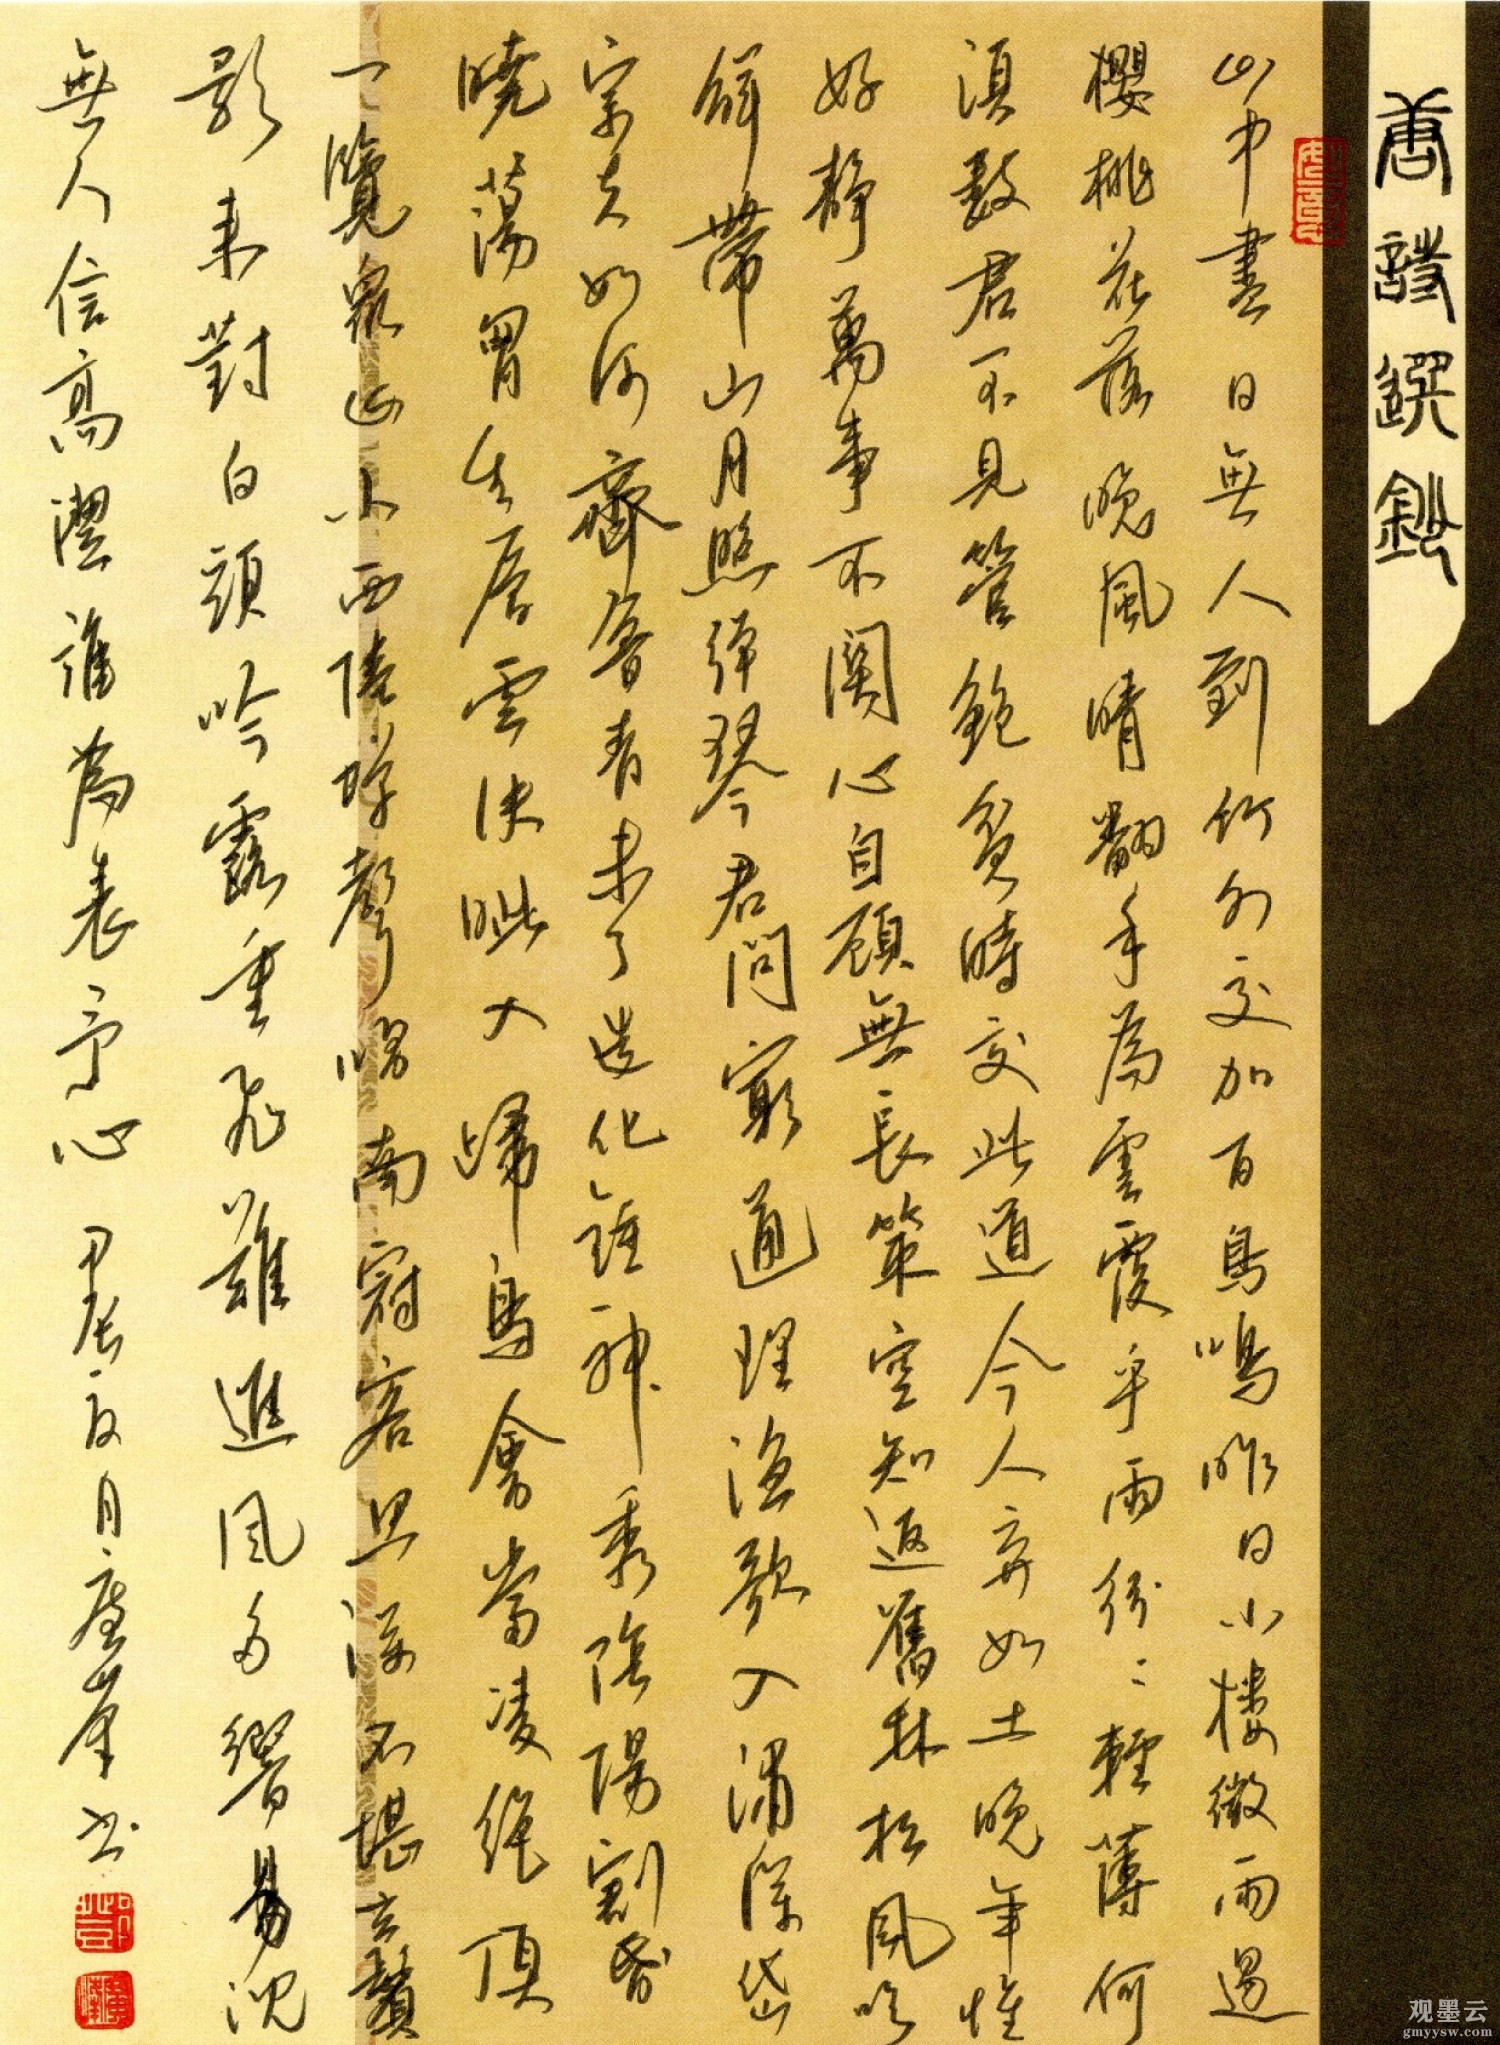 唐詩選鈔
山中盡日無人到竹外交加百鳥鳴昨日小樓微雨過
櫻桃花落晚風晴翻手為雲覆手雨紛〻輕薄何
須數君不見管鮑貧時交此道今人棄如土晚年惟
好靜萬事不關心自顧無長策空知返舊林松風吹
解帶山月照彈琴君問窮通理漁歌入浦深岱
宗夫如何齊魯青未了造化鍾神秀陰陽割昏
曉蕩胸生層雲決眦入歸鳥會當凌絕頂
一覽眾山小西陸蟬聲唱南冠客思深不堪玄鬢
影來對白頭吟露重飛難進風多響易沈
無人信高潔誰為表予心 甲辰夏月崖書
观墨云
gmyysw.com